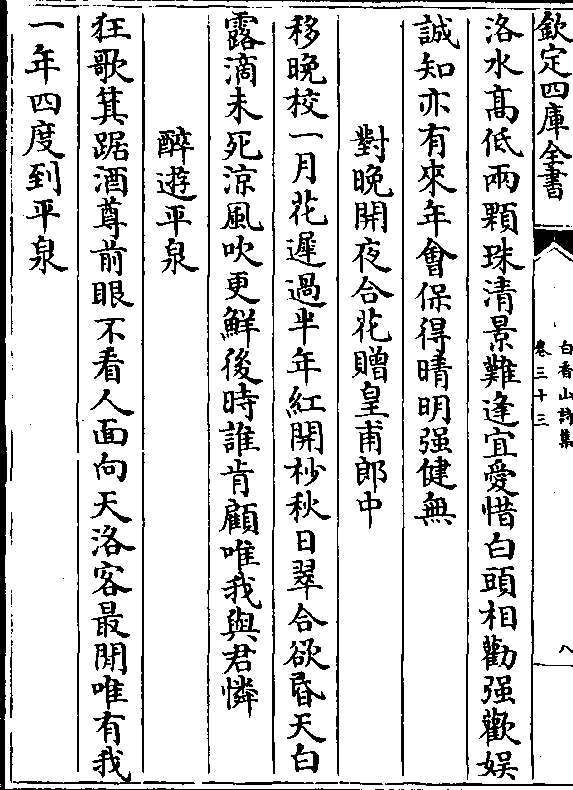 欽定四庫全書
白香山詩集
卷三十三
八
洛水髙低兩顆珠清景難逢宜愛惜白頭相勸强歡娱
誠知亦有來年會保得晴明强健無
對晚開夜合花贈皇甫郎中
移晚校一月花遲過半年紅開杪秋日翠合欲昏天白
露滴未死涼風吹更鮮後時誰肯顧唯我與君憐
醉遊平泉
狂歌箕踞酒尊前眼不看人面向天洛客最閒唯有我
一年四度到平泉